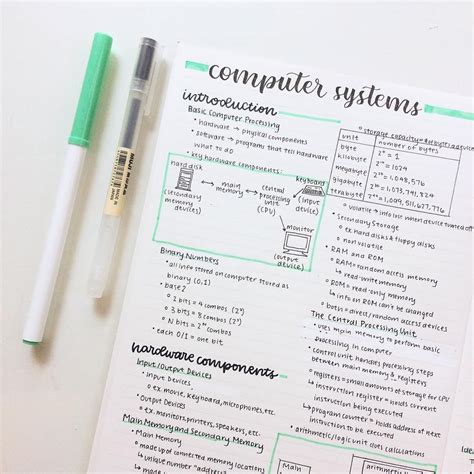 computer systems
introduction
Basic Computer Processing
• hardware → physical components
• software → programs that tell hardware
what to do
• key hardware components:
hard disk
(secondary
memory
devices)
main
memory
central
processing
unit
(CPU)
keyboard
(input
device)
monitor
(output
device)
Binary Numbers
• all info stored on computer stored as
binary (0,1)
• base2
• 2 bits = 4 combos (2²)
• 3 bits = 8 combos (2³)
• N bits = 2ᴺ combos
• each 0/1 = one bit
hardware components
Input/Output Devices
• input devices
• ex. mouse, keyboard, microphones, etc.
• Output Devices
• ex. monitors, printers, speakers, etc.
Main Memory and Secondary Memory
• Main Memory
• made up of connected memory locations
↳ unique number = address
• storage capacity = # of bytes a device
unit number of bytes
byte 2⁰ = 1
kilobyte 2¹⁰ = 1024
megabyte 2²⁰ = 1,048,576
gigabyte 2³⁰ = 1,073,741,824
terabyte 2⁴⁰ = 1,099,511,627,776
• volatile → info lost when device turned off
• Secondary Storage
• ex. hard disks & floppy disks
• non volatile
• RAM and ROM
• RAM = random access memory
↳ read-write memory
• ROM = read-only memory
↳ info on ROM can't be changed
• both = direct/random access devices
The Central Processing Unit
• uses main memory to perform basic
processing in computer
• control unit handles processing steps
between main memory & registers
• registers = small amounts of storage for CPU
↳ instruction register = holds current
instruction being executed
↳ program counter = holds address of next
instruction to be executed
• arithmetic/logic unit does calculations
MUJI
MADE IN JAPAN